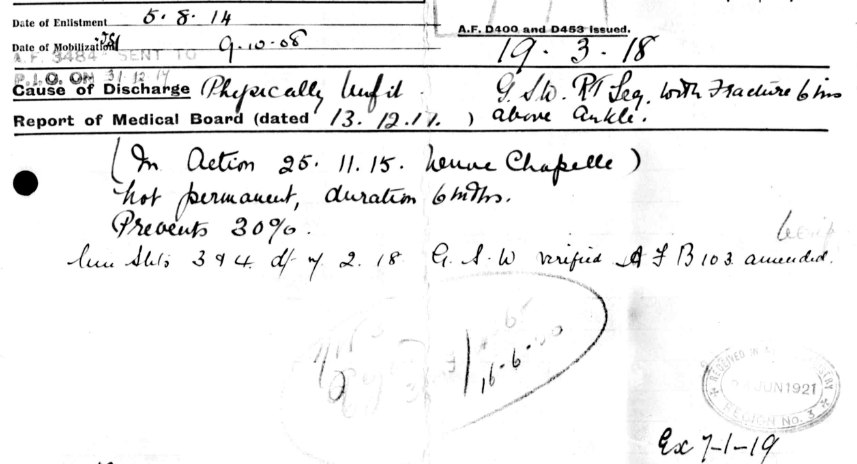 Date of Enlistment 5.8.14
A.F. D400 and D453 Issued.
Date of Mobilization 9-10-08
19.3.18
A.F. 3484 SENT TO
P.I.O. ON 31-12-17
Cause of Discharge Physically Unfit. G.S.W. Rt Leg. with Fracture 6 ins
Report of Medical Board (dated 13.12.17.) above ankle.
(In Action 25.11.15. Neuve Chapelle)
Not permanent, duration 6 mths.
Prevents 30%.
3 & 4 2.18 G.S.W verified A F B 103 amended.
16-6-20
RECEIVED IN
JUN 1921
REGION No. 3
Ex 7-1-19